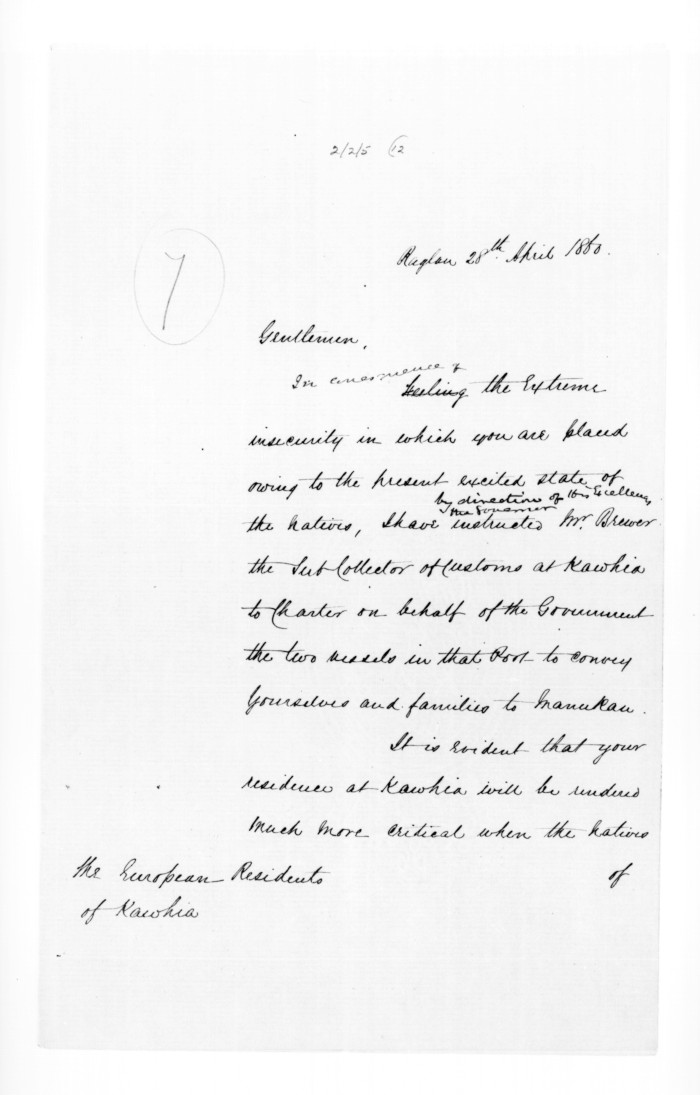 2/2/5 (12
7
Raglan 28th April 1860.
Gentlemen,
In consequence of
Feeling the Extreme
insecurity in which you are placed
owing to the present excited state of
by direction of His Excellency
the Governor
the Natives, I have instructed Mr. Brewer
the Sub Collector of Customs at Kawhia
to Charter on behalf of the Government
the two vessels in that Port to convey
Yourselves and families to Manukau.
It is evident that your
residence at Kawhia will be rendered
much more critical when the Natives
of
The European Residents
of Kawhia